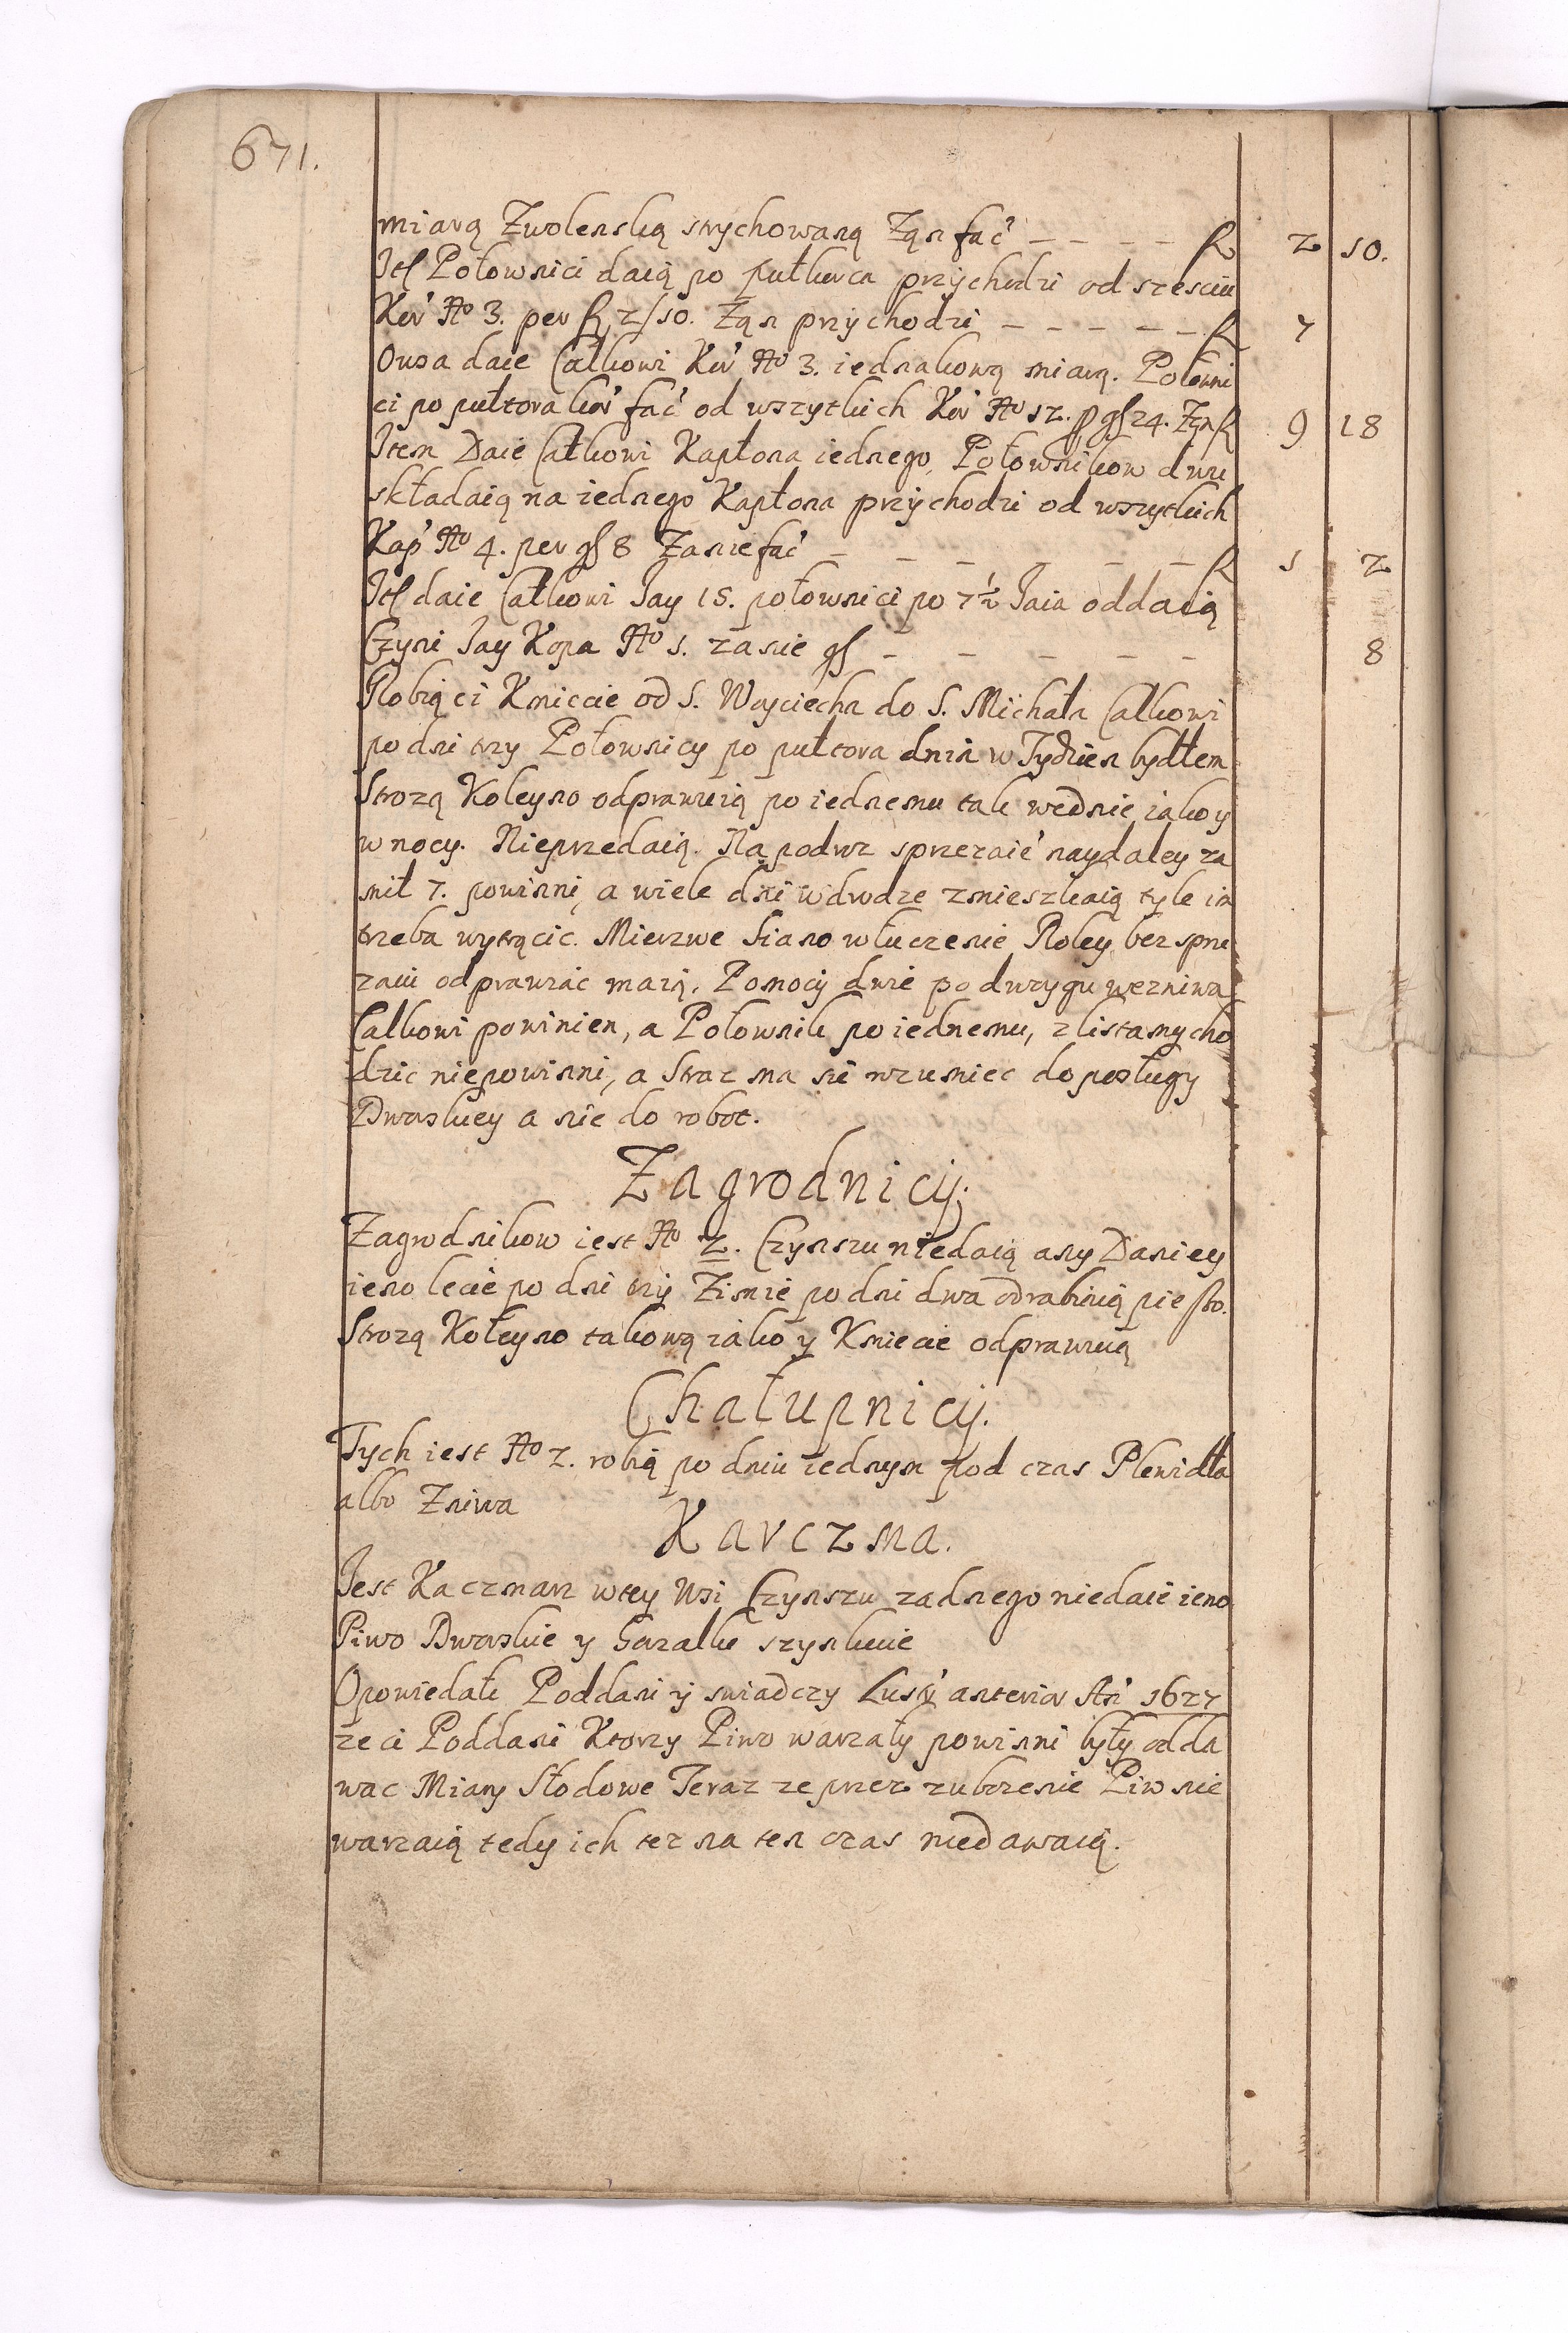 671.
miarą Zwolenską strychowaną Ząn fac̓ — — — — fl 2 10.
Itl Połownici daią po pułkorca przychodzi od szesciu
Kor̓ No 3. per fl 2/10. Ząn przychodzi — — — — — fl 7
Owsa daie Całkowi Kor̓ No 3. iednakową miarą. Połowni
ci po pułtora kor̓ fac̓ od wszytkich Kor̓ No 12. p gl 24. Zęn fl 9 18
Item Daie Całkowi Kapłona iednego, Połownikow dwu
składaią na iednego Kapłona przychodzi od wszytkich
Kap̓ No 4. per gl 8 Zanie fac̓ — — — — — fl 1 2
Itl daie Całkowi Jay 15. połownici po 7 ½ Jaia oddaią
Czyni Jay Kopa No 1. zanie gl — — — — — 8
Robią ci Kmiecie od S. Woyciecha do S. Michała Całkowi
po dni trzy Połownicy po pułtora dnia w Tydzien bydłem
Strozą Koleyno odprawuią po iednemu tak wednie iako y
w nocy. Nieprzedaią. Na podwr sprzezaic̓ naydaley za
mil 7. powinni, a wiele dni w drodze zmieszkaią tyle im
trzeba wytrącic. Mierzwe Siano włuczenie Roley bez sprze
zaiu odprawiac maią. Pomocy dwie po dwrygu wezniwa
Calkowi powinien, a Połownik po iednemu, z listamy cho
dzic niepowinni, a Straz ma sie rozumiec do posługy
Dworskiey a nie do robot.
Zagrodnicy.
Zagrodnikow iest No 2. Czynszu niedaią any Daniey
ieno lecie po dni trzy Zimie po dni dwa odrabiaią pieszo.
Strozą Koleyno takową iako y Kmiecie odprawuią
Chałupnicy.
Tych iest No 2. robią po dniu iednym pod czas Plewidła
albo Zniwa
Karczma.
Jest Kaczmarz wtey Wsi Czynszu zadnego niedaie ieno
Piwo Dworskie y Gorzałke szynkuie
Opowiedali Poddani y swiadczy Lustr̓ anterior An̓ 1627
ze ci Poddani Ktorzy Piwo warzały powinni były odda
wac Miary Słodowe Teraz ze przez zubozenie Piw nie
warzaią tedy ich tez na ten czas niedawaią.